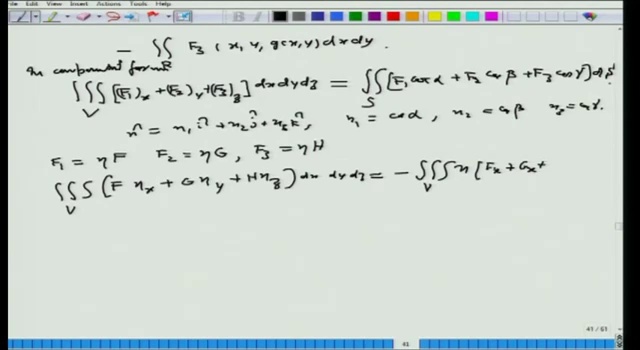 File Edit View Insert Actions Tools Help
- ∬_R F₃ (x, y, g(x,y)) dx dy.
In component form
∭_V [(F₁)_x + (F₂)_y + (F₃)_z] dx dy dz = ∬_S [F₁ cos α + F₂ cos β + F₃ cos γ] ds
n̂ = n₁ î + n₂ ĵ + n₃ k̂, n₁ = cos α, n₂ = cos β n₃ = cos γ.
F₁ = ηF F₂ = ηG, F₃ = ηH
∭_V (F η_x + G η_y + H η_z) dx dy dz = - ∭_V η [F_x + G_x +
41 / 61
41